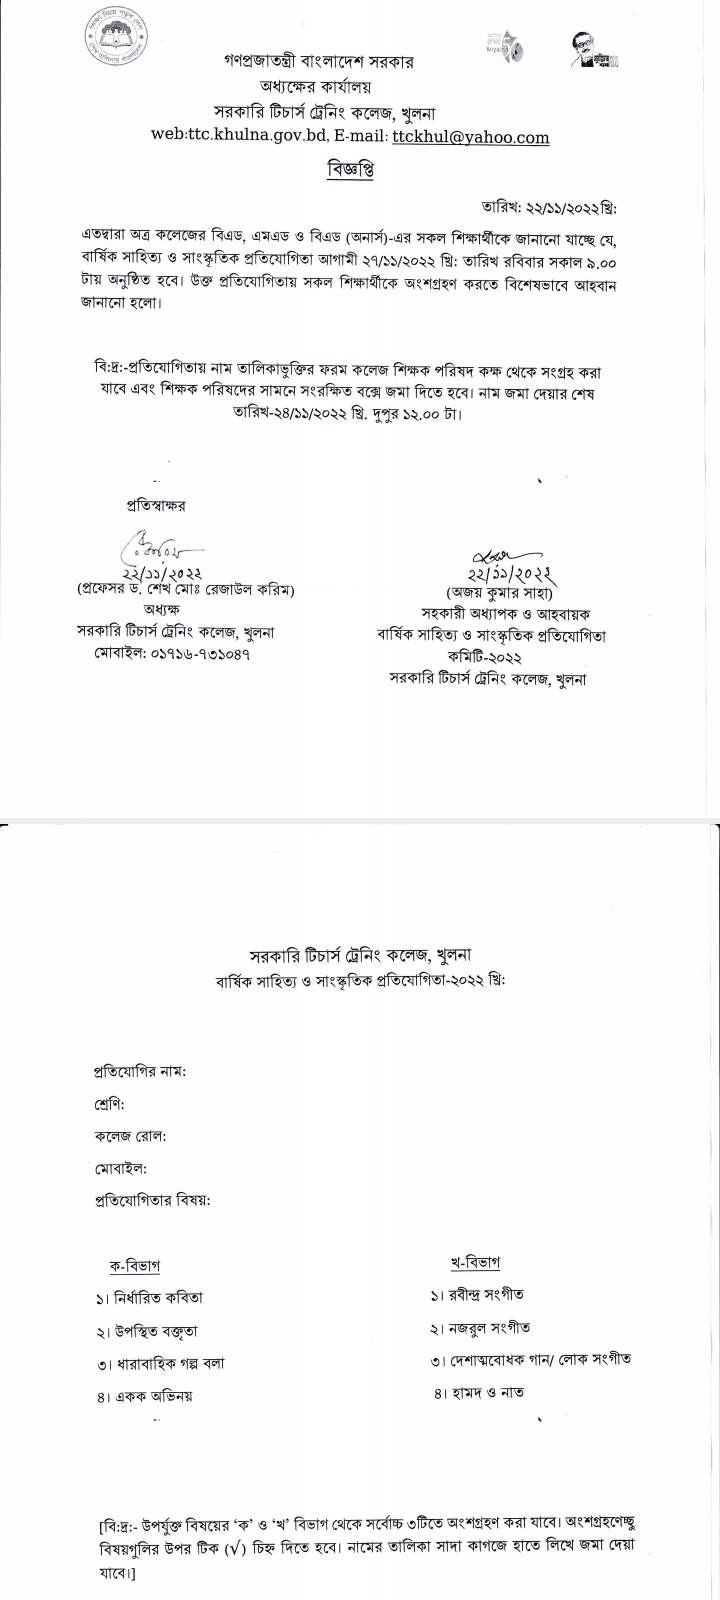 গণপ্রজাতন্ত্রী বাংলাদেশ সরকার
অধ্যক্ষের কার্যালয়
সরকারি টিচার্স ট্রেনিং কলেজ, খুলনা
web:ttc.khulna.gov.bd, E-mail: ttckhul@yahoo.com
বিজ্ঞপ্তি
তারিখ: ২২/১১/২০২২খ্রি:
এতদ্বারা অত্র কলেজের বিএড, এমএড ও বিএড (অনার্স)-এর সকল শিক্ষার্থীকে জানানো যাচ্ছে যে,
বার্ষিক সাহিত্য ও সাংস্কৃতিক প্রতিযোগিতা আগামী ২৭/১১/২০২২ খ্রি: তারিখ রবিবার সকাল ৯.০০
টায় অনুষ্ঠিত হবে। উক্ত প্রতিযোগিতায় সকল শিক্ষার্থীকে অংশগ্রহণ করতে বিশেষভাবে আহবান
জানানো হলো।
বি:দ্র:-প্রতিযোগিতায় নাম তালিকাভুক্তির ফরম কলেজ শিক্ষক পরিষদ কক্ষ থেকে সংগ্রহ করা
যাবে এবং শিক্ষক পরিষদের সামনে সংরক্ষিত বক্সে জমা দিতে হবে। নাম জমা দেয়ার শেষ
তারিখ-২৪/১১/২০২২ খ্রি. দুপুর ১২.০০ টা।
প্রতিস্বাক্ষর
২২/১১/২০২২
(প্রফেসর ড. শেখ মোঃ রেজাউল করিম)
অধ্যক্ষ
সরকারি টিচার্স ট্রেনিং কলেজ, খুলনা
মোবাইল: ০১৭১৬-৭৩১০৪৭
২২/১১/২০২২
(অজয় কুমার সাহা)
সহকারী অধ্যাপক ও আহবায়ক
বার্ষিক সাহিত্য ও সাংস্কৃতিক প্রতিযোগিতা
কমিটি-২০২২
সরকারি টিচার্স ট্রেনিং কলেজ, খুলনা
সরকারি টিচার্স ট্রেনিং কলেজ, খুলনা
বার্ষিক সাহিত্য ও সাংস্কৃতিক প্রতিযোগিতা-২০২২ খ্রি:
প্রতিযোগির নাম:
শ্রেণি:
কলেজ রোল:
মোবাইল:
প্রতিযোগিতার বিষয়:
ক-বিভাগ
১। নির্ধারিত কবিতা
২। উপস্থিত বক্তৃতা
৩। ধারাবাহিক গল্প বলা
৪। একক অভিনয়
খ-বিভাগ
১। রবীন্দ্র সংগীত
২। নজরুল সংগীত
৩। দেশাত্মবোধক গান/ লোক সংগীত
৪। হামদ ও নাত
[বি:দ্র:- উপর্যুক্ত বিষয়ের ‘ক’ ও ‘খ’ বিভাগ থেকে সর্বোচ্চ ৩টিতে অংশগ্রহণ করা যাবে। অংশগ্রহণেচ্ছু
বিষয়গুলির উপর টিক (√) চিহ্ন দিতে হবে। নামের তালিকা সাদা কাগজে হাতে লিখে জমা দেয়া
যাবে।]